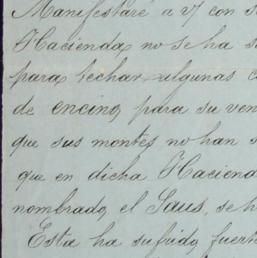 Manifestaré a V con s
Hacienda no se ha s
para techar algunas c
de encino, para su ven
que sus montes no han s
que en dicha Hacienda
nombrado, el Saus, se h
Esta ha sufrido fuerte